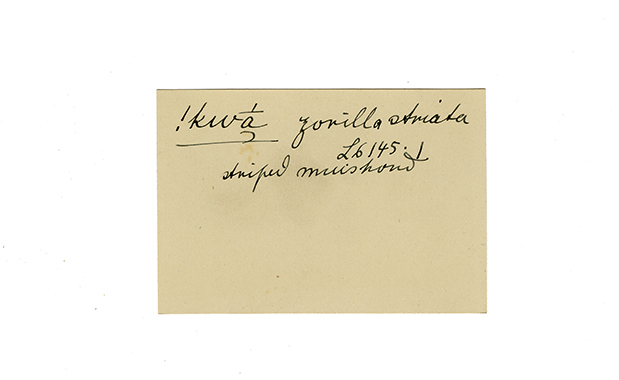 !kwá̱ zorilla striata
L6 145.
striped muishond